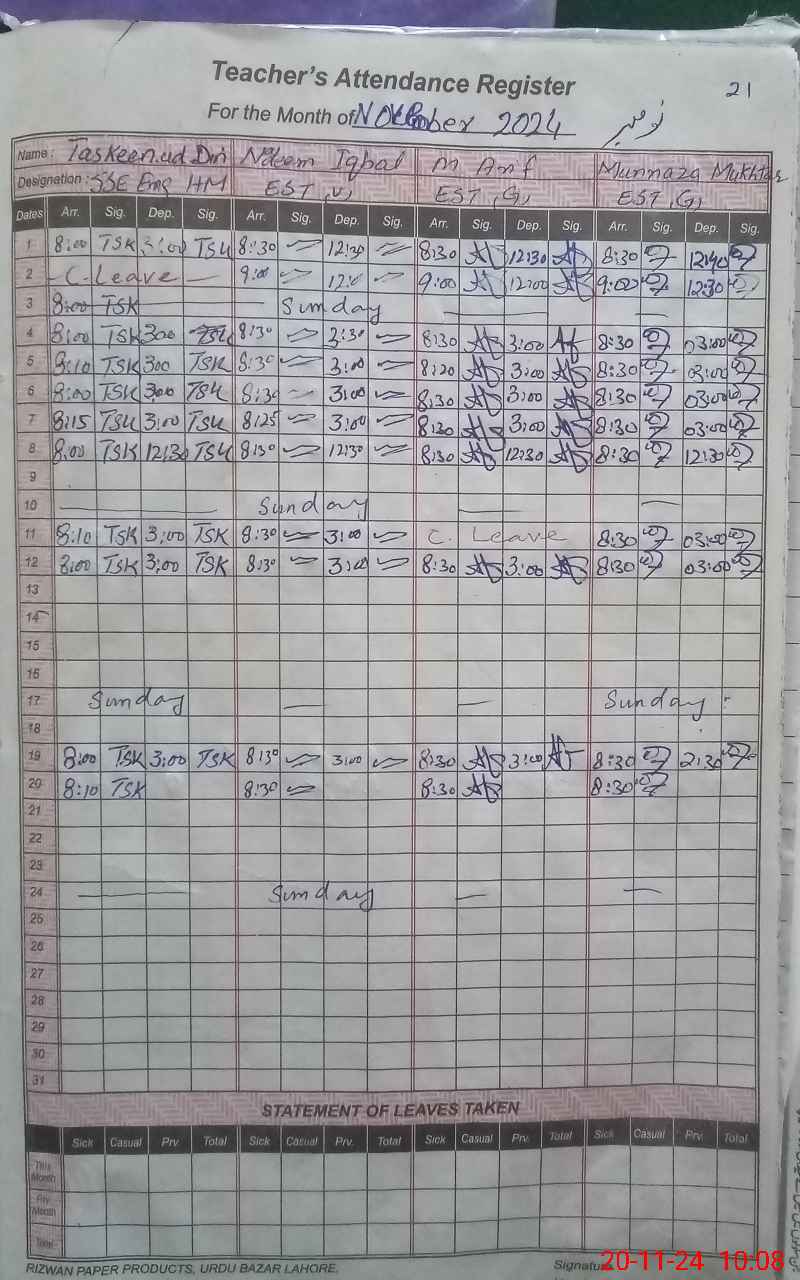 21
Teacher's Attendance Register
For the Month of November 2024 نومبر
Name: Taskeen.ud Din Ndeem Iqbal M Arif Munnaza Mukhtar
Designation: SSE Eng HM EST (U) EST (G) EST (G)
Dates Arr. Sig. Dep. Sig. Arr. Sig. Dep. Sig. Arr. Sig. Dep. Sig. Arr. Sig. Dep. Sig.
1 8:00 TSK 3:00 TSK 8:30 12:30 8:30 12:30 8:30 12:40
2 — C. Leave — 9:00 12:0 9:00 12:00 9:00 12:30
3 8:00 TSK — Sunday — —
4 8:00 TSK 300 TSK 8:30 3:30 8:30 3:00 8:30 03:00
5 8:10 TSK 300 TSK 8:30 3:00 8:20 3:00 8:30 03:00
6 8:00 TSK 300 TSK 8:30 3:00 8:30 3:00 8:30 03:00
7 8:15 TSK 3:00 TSK 8:25 3:00 8:30 3:00 8:30 03:00
8 8:00 TSK 12:30 TSK 8:30 12:30 8:30 12:30 8:30 12:30
9
10 — Sunday — —
11 8:10 TSK 3:00 TSK 8:30 3:00 C. Leave 8:30 03:00
12 8:00 TSK 3:00 TSK 8:30 3:00 8:30 3:00 8:30 03:00
13
14
15
16
17 Sunday — — Sunday
18
19 8:00 TSK 3:00 TSK 8:30 3:00 8:30 3:00 8:30 2:30
20 8:10 TSK 8:30 8:30 8:30
21
22
23
24 — Sunday — —
25
26
27
28
29
30
31
STATEMENT OF LEAVES TAKEN
Sick Casual Prv. Total Sick Casual Prv. Total Sick Casual Prv. Total Sick Casual Prv. Total
This Month
Prv. Month
Total
RIZWAN PAPER PRODUCTS, URDU BAZAR LAHORE. Signatu
20-11-24 10:08